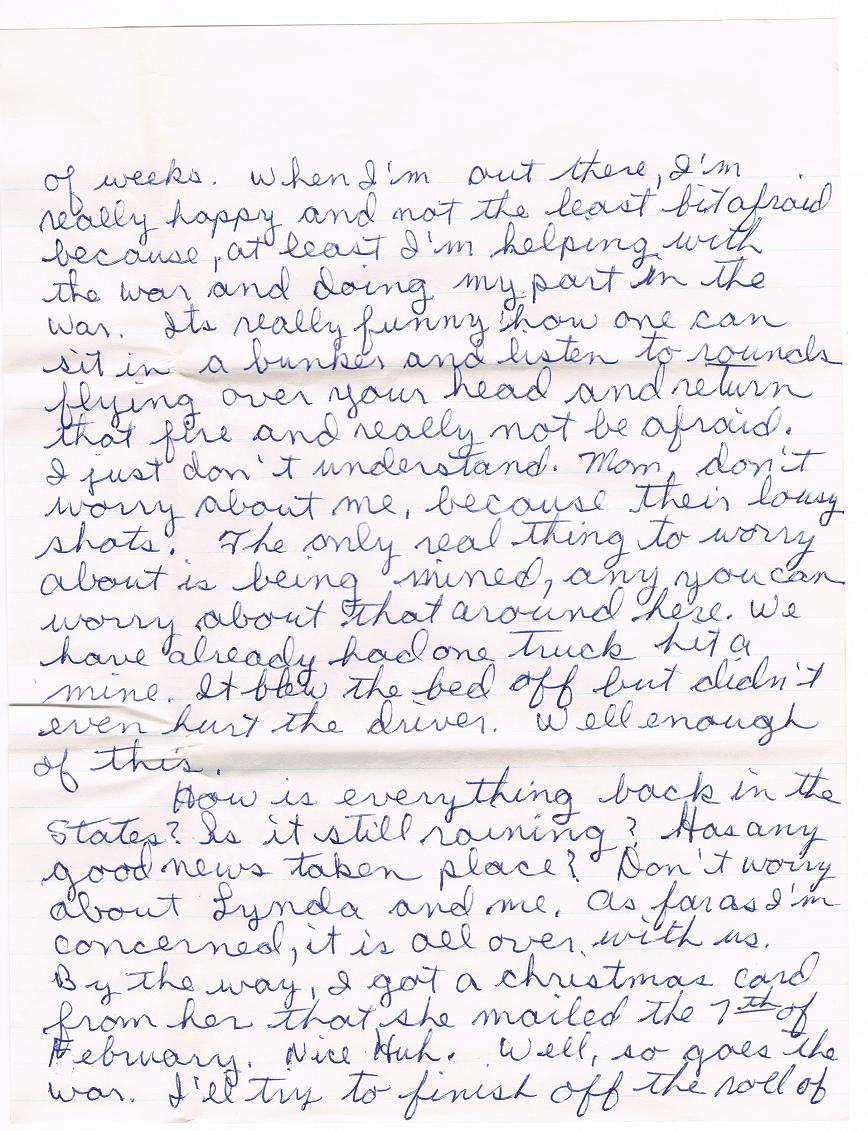 of weeks. When I'm out there, I'm
really happy and not the least bit afraid
because, at least I'm helping with
the war and doing my part in the
war. Its really funny how one can
sit in a bunker and listen to rounds
flying over your head and return
that fire and really not be afraid.
I just don't understand. Mom, don't
worry about me, because their lousy
shots. The only real thing to worry
about is being mined, any you can
worry about that around here. We
have already had one truck hit a
mine. It blew the bed off but didn't
even hurt the driver. Well enough
of this.
How is everything back in the
States? Is it still raining? Has any
good news taken place? Don't worry
about Lynda and me. As far as I'm
concerned, it is all over with us.
By the way, I got a christmas card
from her that she mailed the 7th of
February. Nice Huh. Well, so goes the
war. I'll try to finish off the roll of